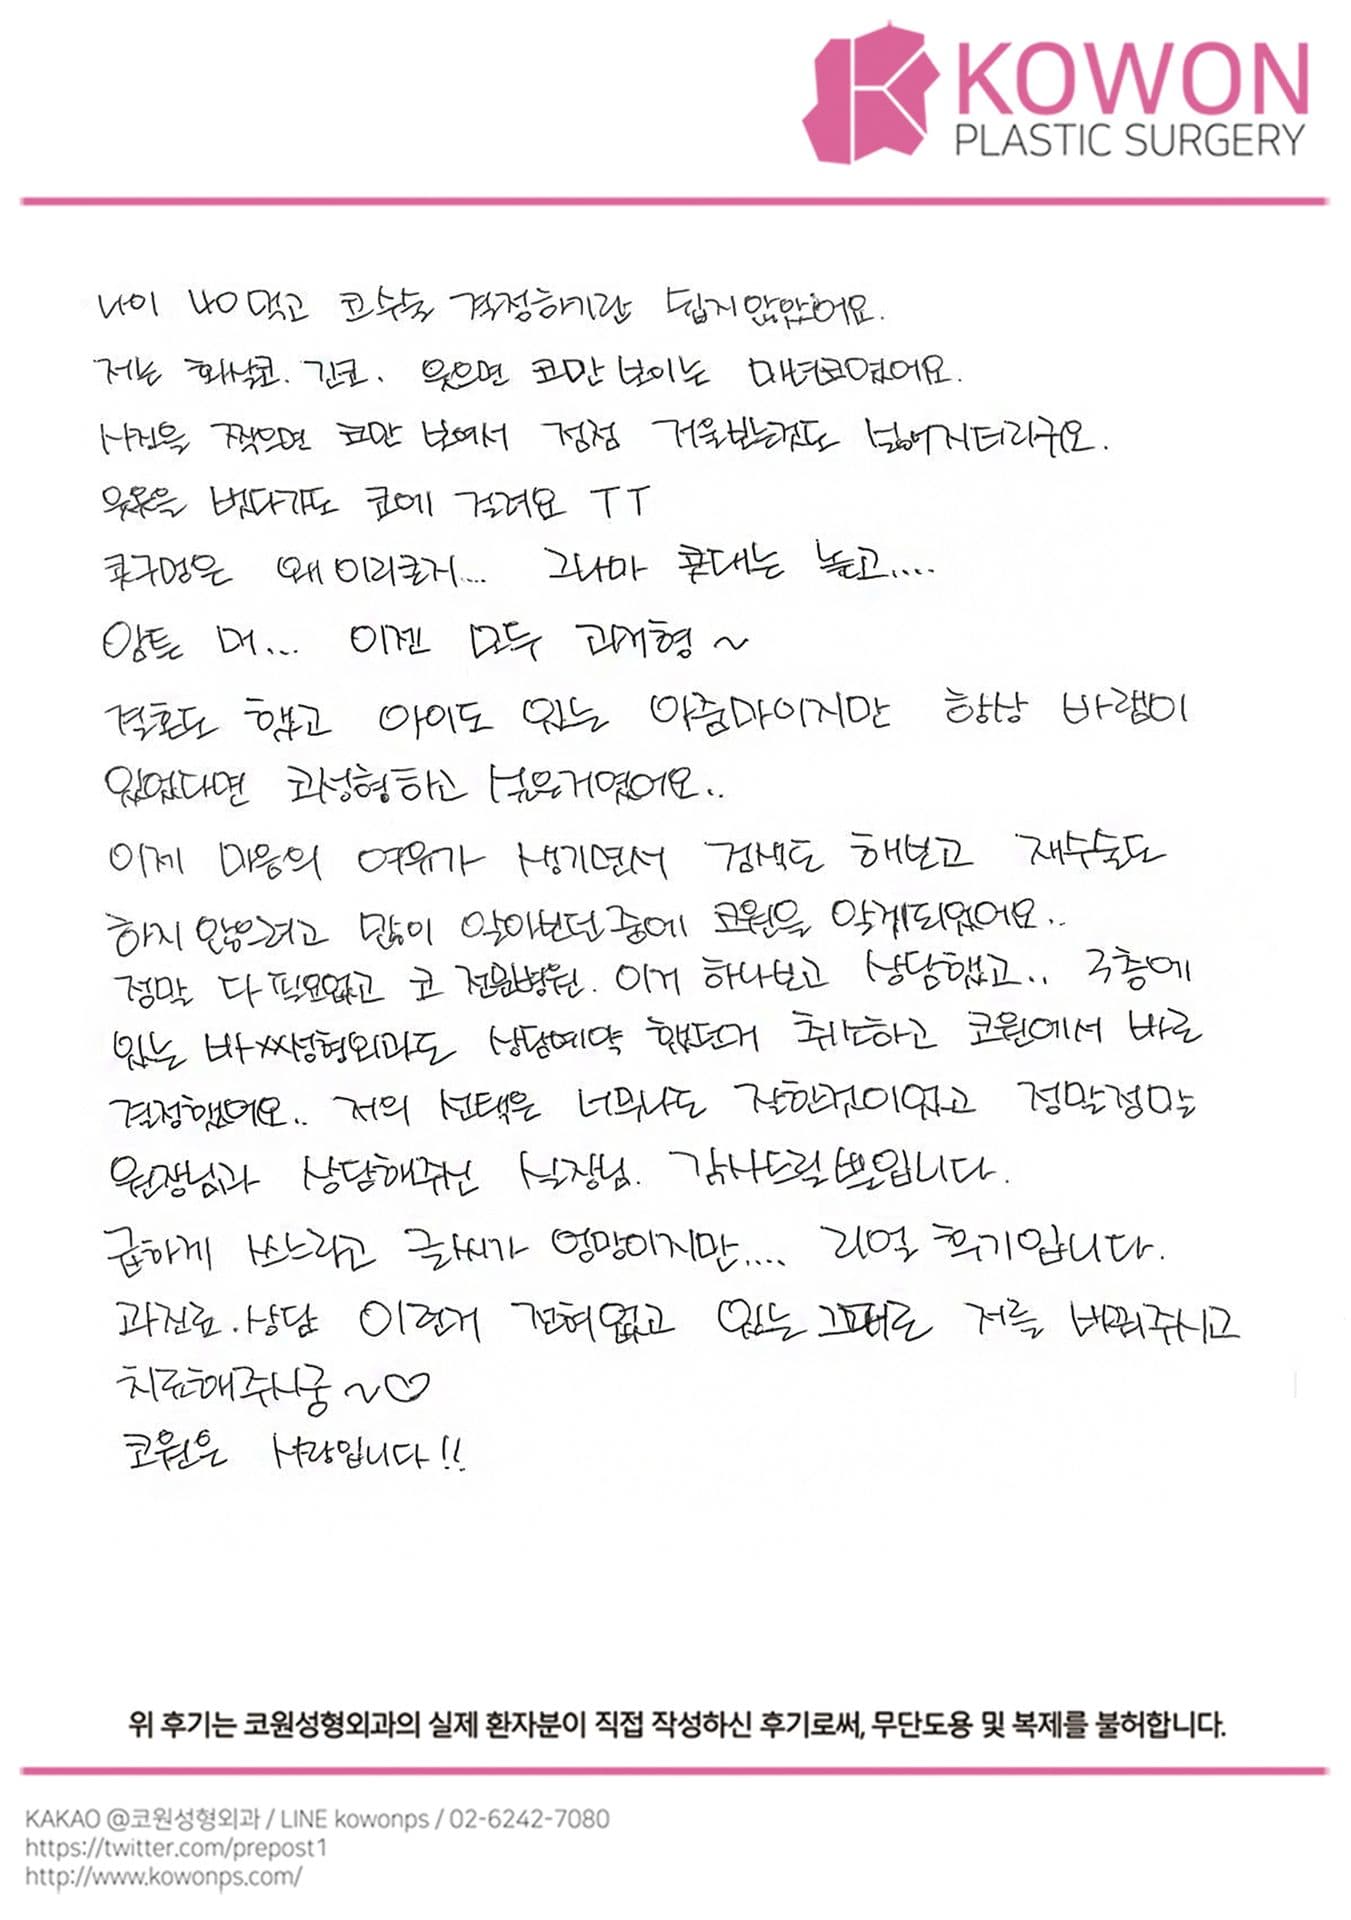 KOWON
PLASTIC SURGERY
나이 40먹고 코수술 결정하기란 쉽지않았어요.
저는 화살코. 긴코. 웃으면 코만 보이는 마녀코였어요.
사진을 찍으면 코만 보여서 점점 거울보는것도 싫어지더라구요.
윗옷을 벗다가도 코에 걸려요 ㅜㅜ
콧구멍은 왜이리크지... 그나마 콧대는 높고....
암튼 머... 이젠 모두 과거형~
결혼도 했고 아이도 있는 아줌마이지만 항상 바램이
있었다면 코성형하고 싶은거였어요..
이제 마음의 여유가 생기면서 검색도 해보고 재수술도
하지않으려고 많이 알아보던중에 코원을 알게되었어요..
정말 다 필요없고 코 전문병원. 이거 하나보고 상담했고.. 3층에
있는 바××성형외과도 상담예약 했던거 취소하고 코원에서 바로
결정했어요.. 저의 선택은 너무나도 잘한것이였고 정말정말
원장님과 상담해주신 실장님. 감사드릴뿐입니다.
급하게 쓰느라고 글씨가 엉망이지만.... 리얼 후기입니다.
과진료.상담 이런거 전혀없고 있는 그대로 저를 바꿔주시고
치료해주시궁~♡
코원은 사랑입니다!!
위 후기는 코원성형외과의 실제 환자분이 직접 작성하신 후기로써, 무단도용 및 복제를 불허합니다.
KAKAO @코원성형외과 / LINE kowonps / 02-6242-7080
https://twitter.com/prepost1
http://www.kowonps.com/